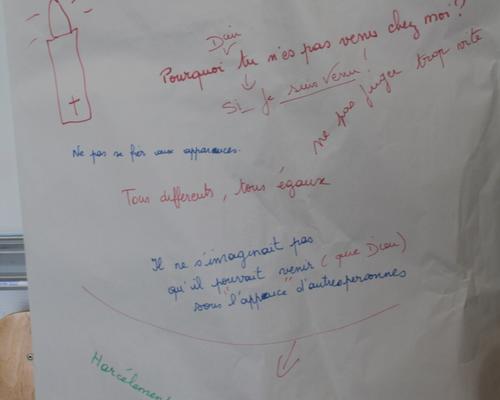 Dieu
Pourquoi tu n'es pas venu chez moi ?
Si je suis venu !
ne pas juger trop vite
Ne pas se fier aux apparences.
Tous differents, tous égaux
Il ne s'imaginait pas
qu'il pourrait venir (que Dieu)
sous "l'apparence" d'autres personnes
Harcèlement